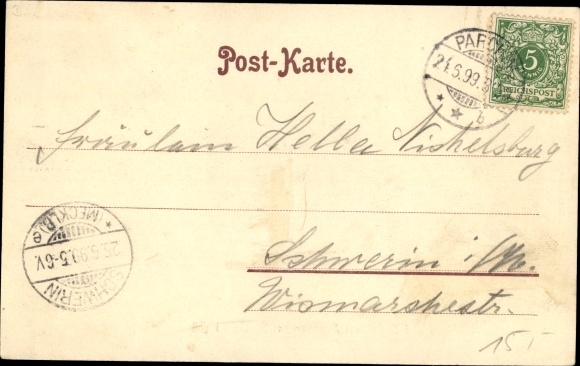 Post-Karte.
PARCHIM
21.6.99.
b
5
REICHSPOST
Fräulein Hella Nickelsburg
Schwerin i/M.
Wismarschestr.
SCHWERIN
(MECKLB)e
25.6.99.5-6V.
15